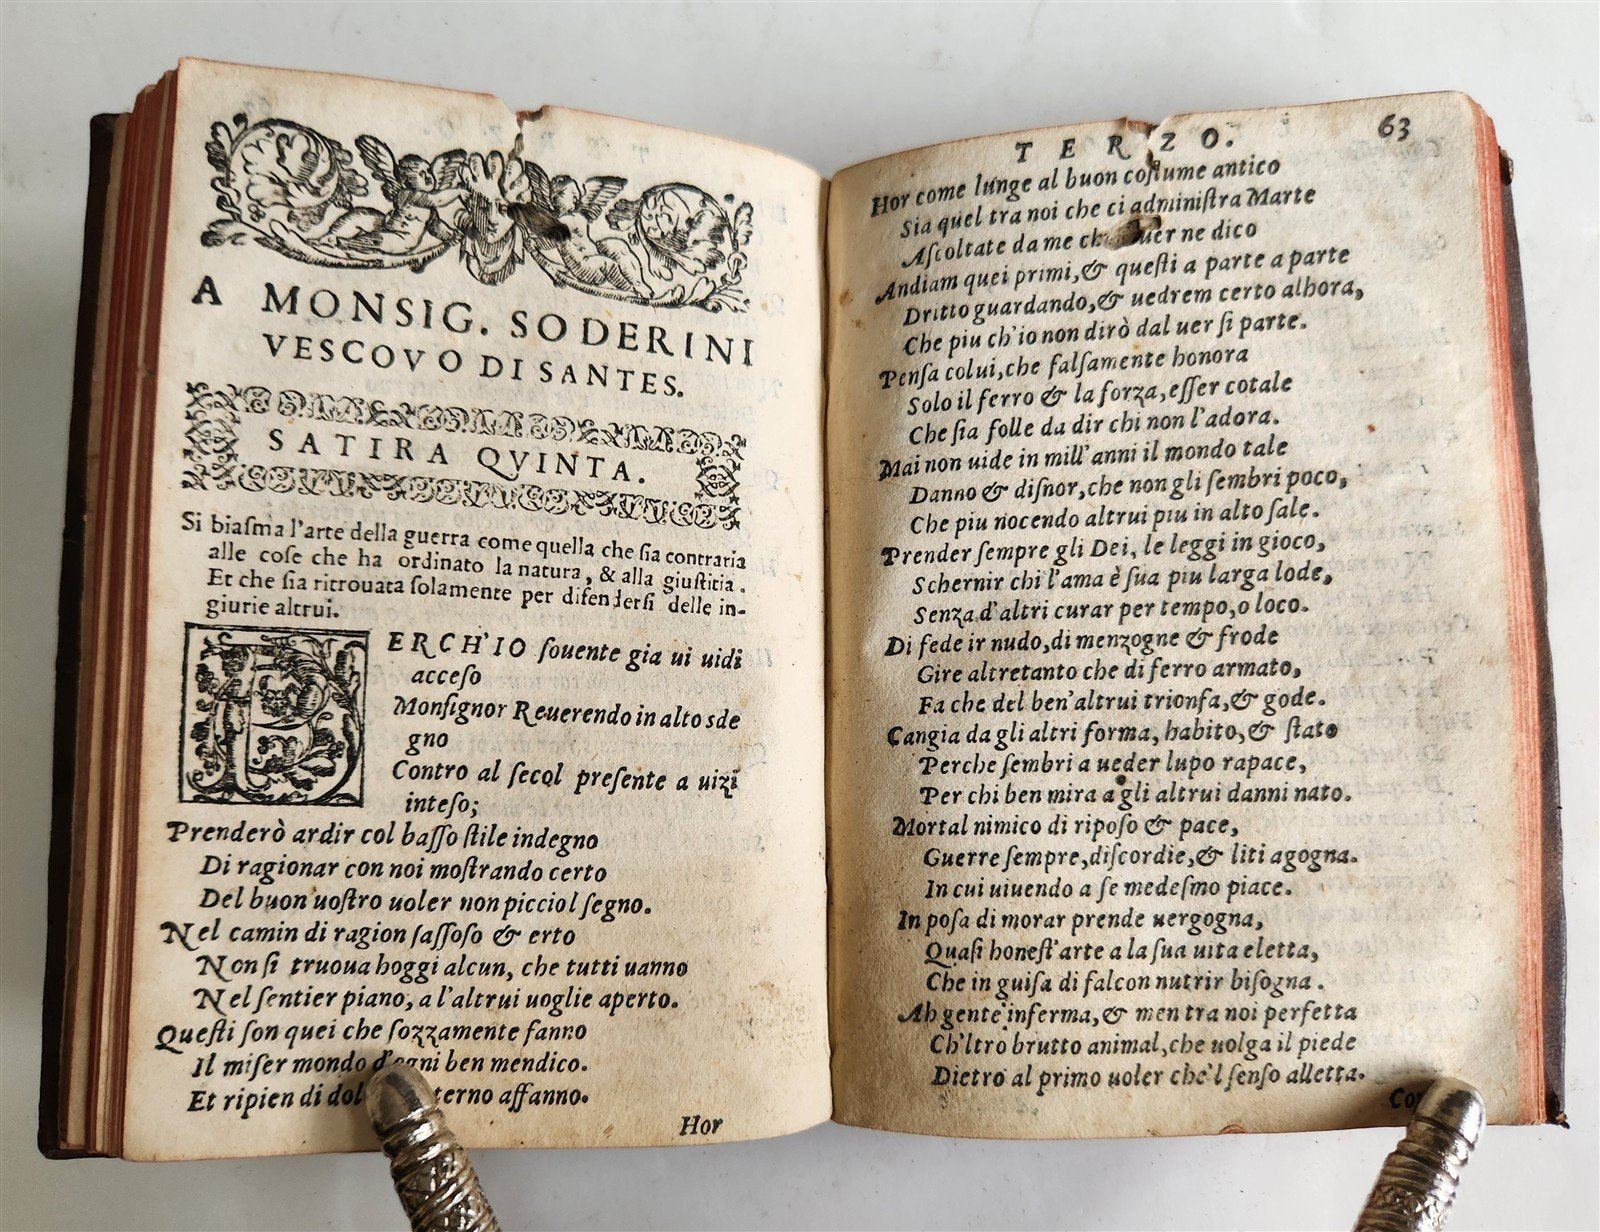 A MONSIG. SODERINI
VESCOVO DI SANTES.
SATIRA QVINTA.
Si biaſma l'arte della guerra come quella che ſia contraria
alle coſe che ha ordinato la natura, & alla giuſtitia.
Et che ſia ritrouata ſolamente per difenderſi delle in-
giurie altrui.
PERCH'IO ſouente gia ui uidi
acceſo
Monſignor Reuerendo in alto sde
gno
Contro al ſecol preſente a uizi
inteſo;
Prenderò ardir col baſſo ſtile indegno
Di ragionar con noi moſtrando certo
Del buon uoſtro uoler non picciol ſegno.
Nel camin di ragion ſaſſoſo & erto
Non ſi truoua hoggi alcun, che tutti uanno
Nel ſentier piano, a l'altrui uoglie aperto.
Queſti ſon quei che ſozzamente fanno
Il miſer mondo d'ogni ben mendico.
Et ripien di terno affanno.
Hor
TERZO. 63
Hor come lunge al buon coſtume antico
Sia quel tra noi che ci adminiſtra Marte
Aſcoltate da me uer ne dico
Andiam quei primi, & queſti a parte a parte
Dritto guardando, & uedrem certo alhora,
Che piu ch'io non dirò dal uer ſi parte.
Penſa colui, che falſamente honora
Solo il ferro & la forza, eſſer cotale
Che ſia folle da dir chi non l'adora.
Mai non uide in mill'anni il mondo tale
Danno & diſnor, che non gli ſembri poco,
Che piu nocendo altrui piu in alto ſale.
Prender ſempre gli Dei, le leggi in gioco,
Schernir chi l'ama è ſua piu larga lode,
Senza d'altri curar per tempo, o loco.
Di fede ir nudo, di menzogne & frode
Gire altretanto che di ferro armato,
Fa che del ben'altrui trionfa, & gode.
Cangia da gli altri forma, habito, & ſtato
Perche ſembri a ueder lupo rapace,
Per chi ben mira a gli altrui danni nato.
Mortal nimico di ripoſo & pace,
Guerre ſempre, diſcordie, & liti agogna.
In cui uiuendo a ſe medeſmo piace.
In poſa di morar prende uergogna,
Quaſi honeſt'arte a la ſua uita eletta,
Che in guiſa di falcon nutrir biſogna.
Ah gente inferma, & men tra noi perfetta
Ch'ltro brutto animal, che uolga il piede
Dietro al primo uoler che'l ſenſo alletta.